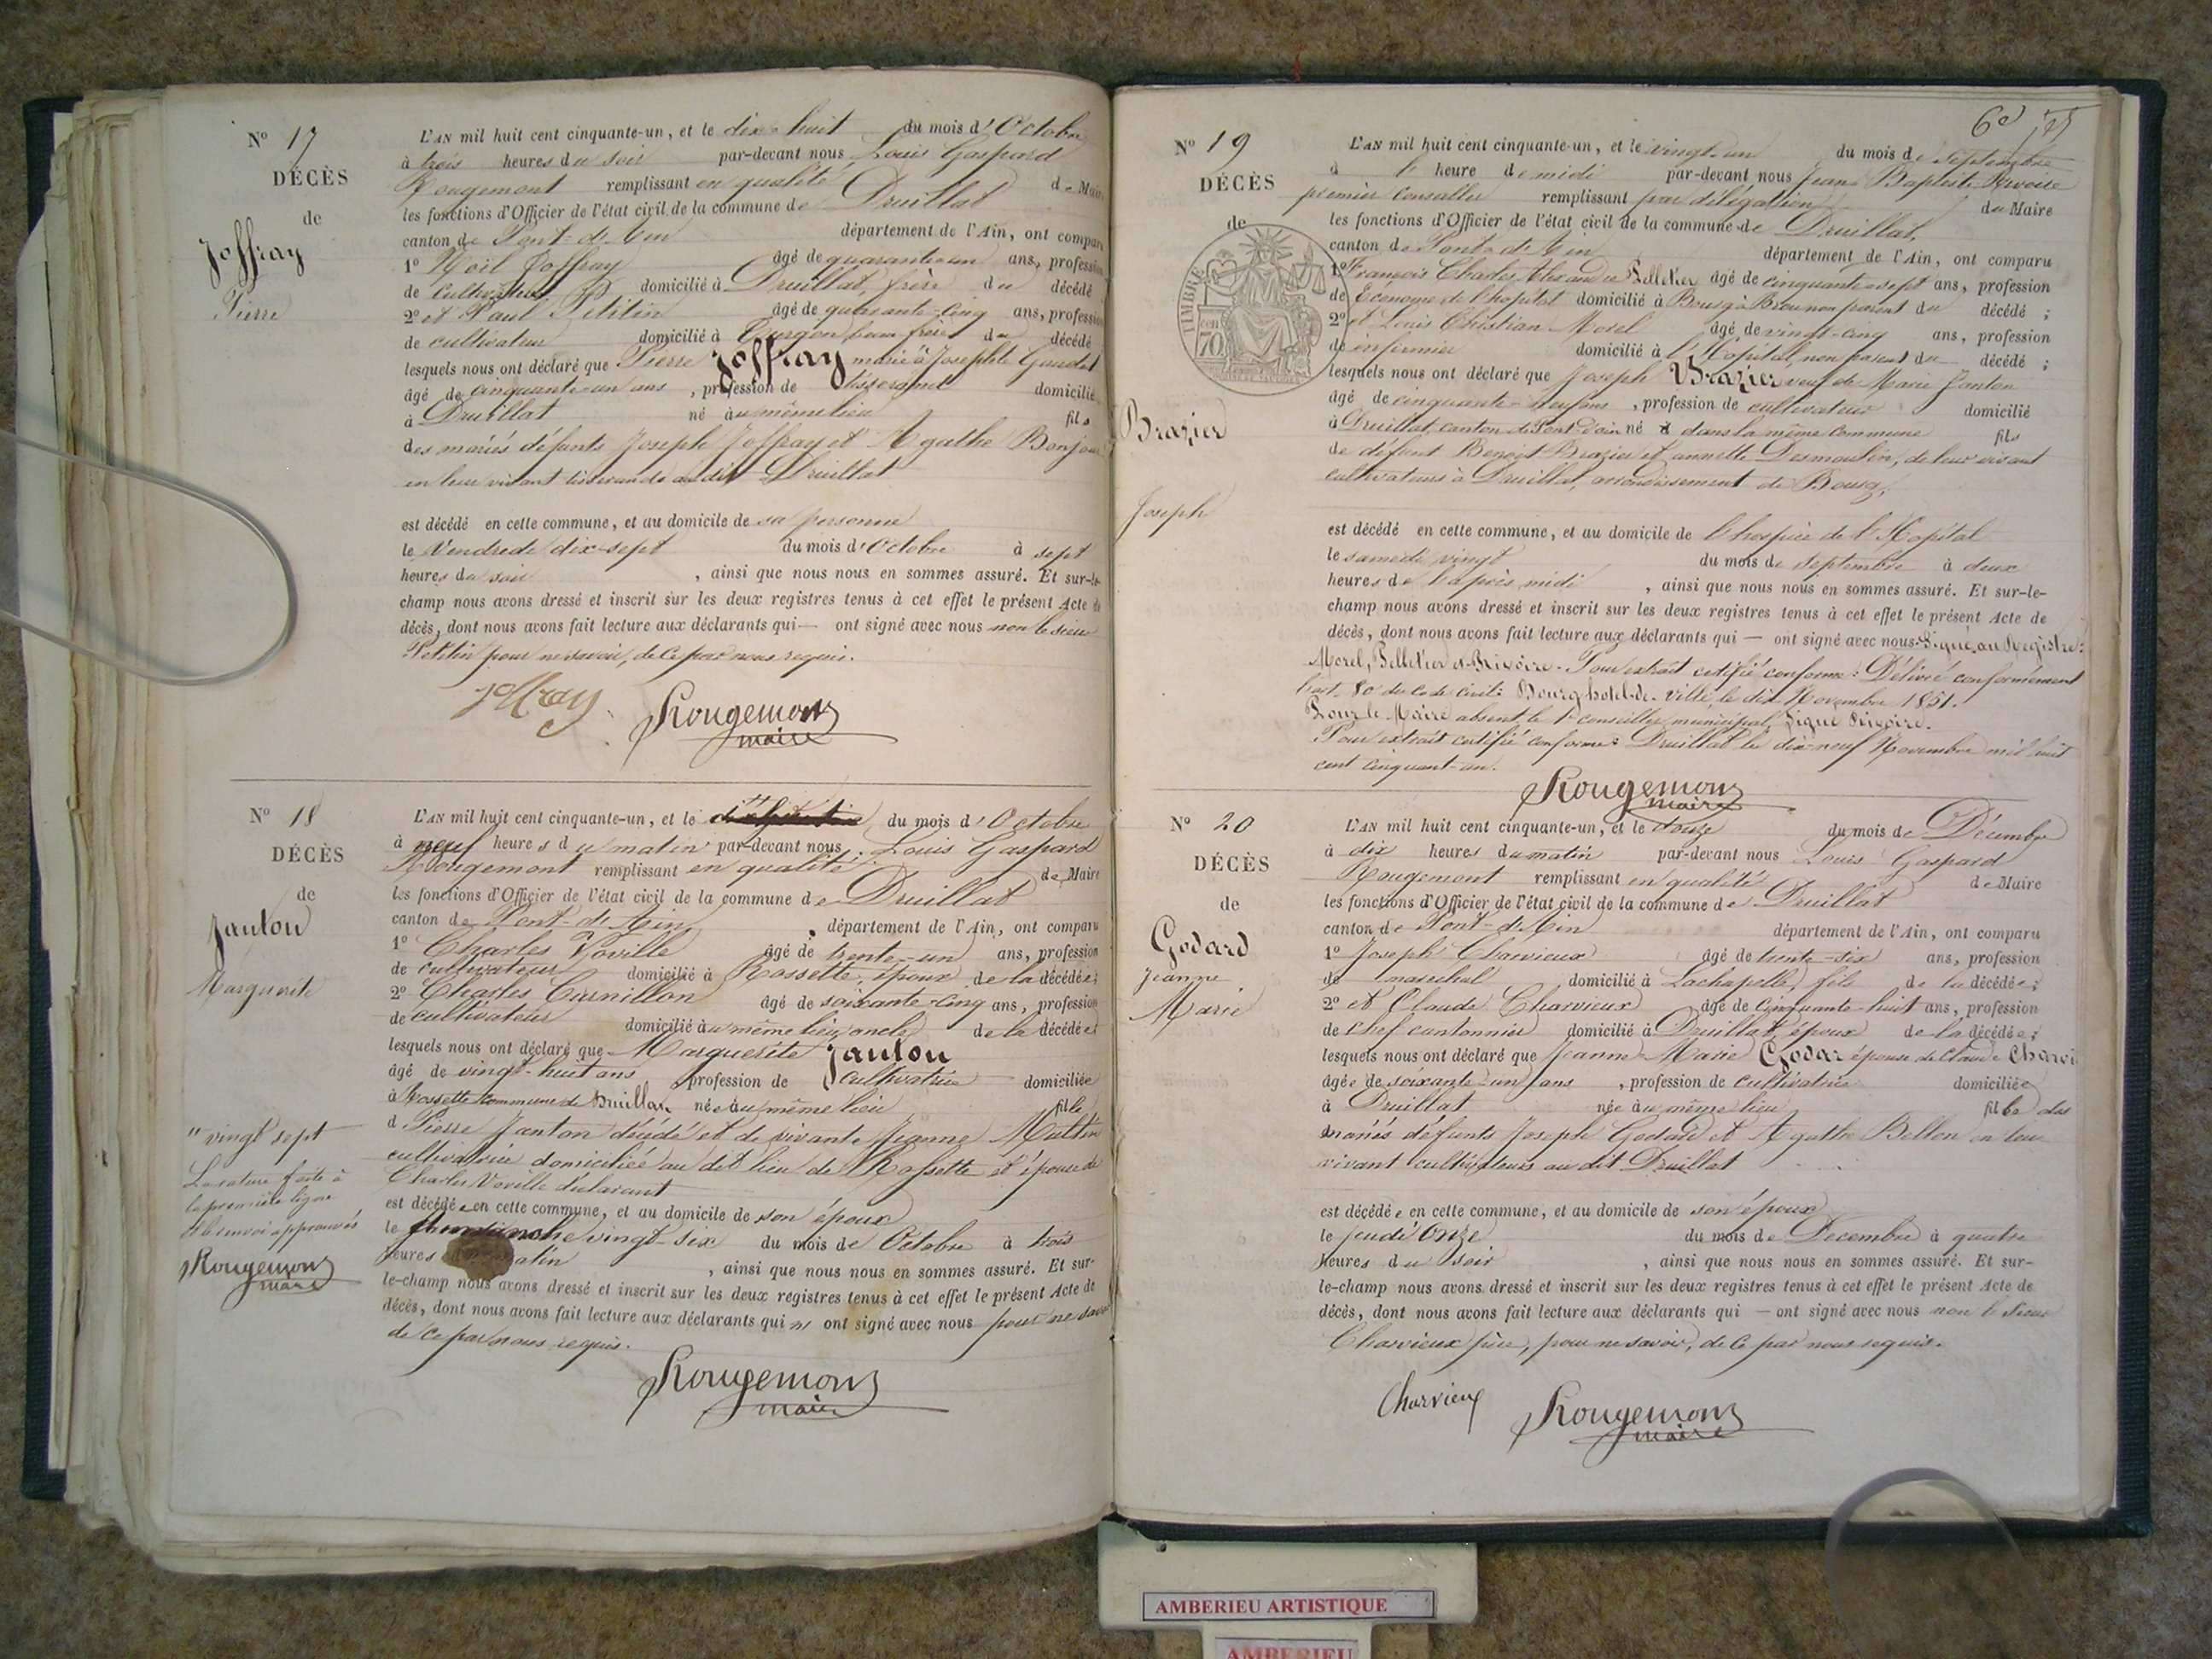 N° 17
DÉCÈS
de
Joffray
Pierre
L'AN mil huit cent cinquante-un, et le dix-huit du mois d'Octobre
à trois heures du soir par-devant nous Louis Gaspard
Rougemont remplissant en qualité de Maire
les fonctions d'Officier de l'état civil de la commune de Druillat
canton de Pont-de-Ain département de l'Ain, ont comparu
1° Noël Joffray âgé de quarante-un ans, profession
de cultivateur domicilié à Druillat, frère du décédé
2° et Paul Petitin âgé de quarante-cinq ans, profession
de cultivateur domicilié à Turgon beau frère du décédé
lesquels nous ont déclaré que Pierre Joffray marié à Josephte Gaudet
âgé de cinquante-un ans, profession de tisserand domicilié
à Druillat né au même lieu fils
des mariés défunts Joseph Joffray et Agathe Bonjour
en leur vivant tisserands au dit Druillat
est décédé en cette commune, et au domicile de sa personne
le Vendredi dix-sept du mois d'Octobre à sept
heures du soir, ainsi que nous nous en sommes assuré. Et sur-le-
champ nous avons dressé et inscrit sur les deux registres tenus à cet effet le présent Acte de
décès, dont nous avons fait lecture aux déclarants qui — ont signé avec nous non le sieur
Petitin pour ne savoir, de ce par nous requis.
Joffray
Rougemont
maire
N° 18
DÉCÈS
de
Janton
Marguerite
L'AN mil huit cent cinquante-un, et le du mois d'Octobre
à neuf heures du matin par-devant nous Louis Gaspard
Rougemont remplissant en qualité de Maire
les fonctions d'Officier de l'état civil de la commune de Druillat
canton de Pont-de-Ain, département de l'Ain, ont comparu
1° Charles Voville âgé de trente-un ans, profession
de cultivateur domicilié à Rossette, époux de la décédée;
2° Charles Curnillon âgé de soixante-cinq ans, profession
de cultivateur domicilié au même lieu, oncle de la décédée;
lesquels nous ont déclaré que Marguerite Janton
âgé de vingt-huit ans, profession de cultivatrice domiciliée
à Rossette commune de Druillat née au même lieu fille
d Pierre Janton décédé et de vivante Jeanne Multin
cultivatrice domiciliée au dit lieu de Rossette et épouse de
Charles Voville déclarant
est décédée en cette commune, et au domicile de son époux
le dimanche vingt-six du mois de Octobre à trois
heures du matin, ainsi que nous nous en sommes assuré. Et sur-
le-champ nous avons dressé et inscrit sur les deux registres tenus à cet effet le présent Acte de
décès, dont nous avons fait lecture aux déclarants qui n' ont signé avec nous pour ne savoir
de ce par nous requis.
Rougemont
maire
" vingt sept
La rature faite à
la première ligne
et le renvoi approuvés
Rougemont
maire
N° 19
DÉCÈS
de
TIMBRE
cen
70
Brazier
Joseph
L'AN mil huit cent cinquante-un, et le vingt-un du mois de Septembre
à l heure de midi par-devant nous Jean Baptiste
premier Conseiller remplissant par délégation du Maire
les fonctions d'Officier de l'état civil de la commune de Druillat,
canton de Pont-de-Ain département de l'Ain, ont comparu
1° François Charles Alexandre Pelletier âgé de cinquante-sept ans, profession
de Économe de l'hopital domicilié à Bourg à Brou non parent du décédé ;
2° et Louis Christian Morel âgé de vingt-cinq ans, profession
de infirmier domicilié à l'Hopital, non parent du décédé ;
lesquels nous ont déclaré que Joseph Brazier veuf de Marie Janton
âgé de cinquante-neuf ans, profession de cultivateur domicilié
à Druillat, canton de Pont-d'ain né dans la même commune fils
de défunt Benoit Brazier et annette Desmoulin, de leur vivant
cultivateurs à Druillat, arrondissement de Bourg,
est décédé en cette commune, et au domicile de l'hospice de l'Hopital
le samedi vingt du mois de septembre à deux
heures de l'après midi, ainsi que nous nous en sommes assuré. Et sur-le-
champ nous avons dressé et inscrit sur les deux registres tenus à cet effet le présent Acte de
décès, dont nous avons fait lecture aux déclarants qui — ont signé avec nous. Signé au Registre:
Morel, Pelletier et . Pour extrait certifié conforme: Délivré conformément
l'art. 80 du Code civil: Bourg hotel-de-ville, le dix Novembre 1851.
Pour le Maire absent, le 1er conseiller municipal, signé .
Pour extrait certifié conforme: Druillat le dix-neuf Novembre mil huit
cent cinquant-un.
Rougemont
maire
N° 20
DÉCÈS
de
Godard
Jeanne
Marie
L'AN mil huit cent cinquante-un, et le douze du mois de Décembre
à dix heures du matin par-devant nous Louis Gaspard
Rougemont remplissant en qualité de Maire
les fonctions d'Officier de l'état civil de la commune de Druillat
canton de Pont-de-Ain département de l'Ain, ont comparu
1° Joseph Charvieux âgé de trente-six ans, profession
de maréchal domicilié à Lachapelle, fils de la décédée;
2° et Claude Charvieux âgé de Cinquante-huit ans, profession
de Chef cantonnier domicilié à Druillat, époux de la décédée;
lesquels nous ont déclaré que Jeanne-Marie Godar épouse de Claude Charvi
âgée de soixante-un ans, profession de cultivatrice domiciliée
à Druillat née au même lieu fille des
mariés défunts Joseph Godard et Agathe Bellon en leur
vivant cultivateurs au dit Druillat
est décédée en cette commune, et au domicile de son époux
le jeudi Onze du mois de Decembre à quatre
heures du soir, ainsi que nous nous en sommes assuré. Et sur-
le-champ nous avons dressé et inscrit sur les deux registres tenus à cet effet le présent Acte de
décès, dont nous avons fait lecture aux déclarants qui — ont signé avec nous non le sieur
Charvieux père, pour ne savoir, de ce par nous requis.
Charvieux
Rougemont
maire
AMBERIEU ARTISTIQUE
AMBERIEU